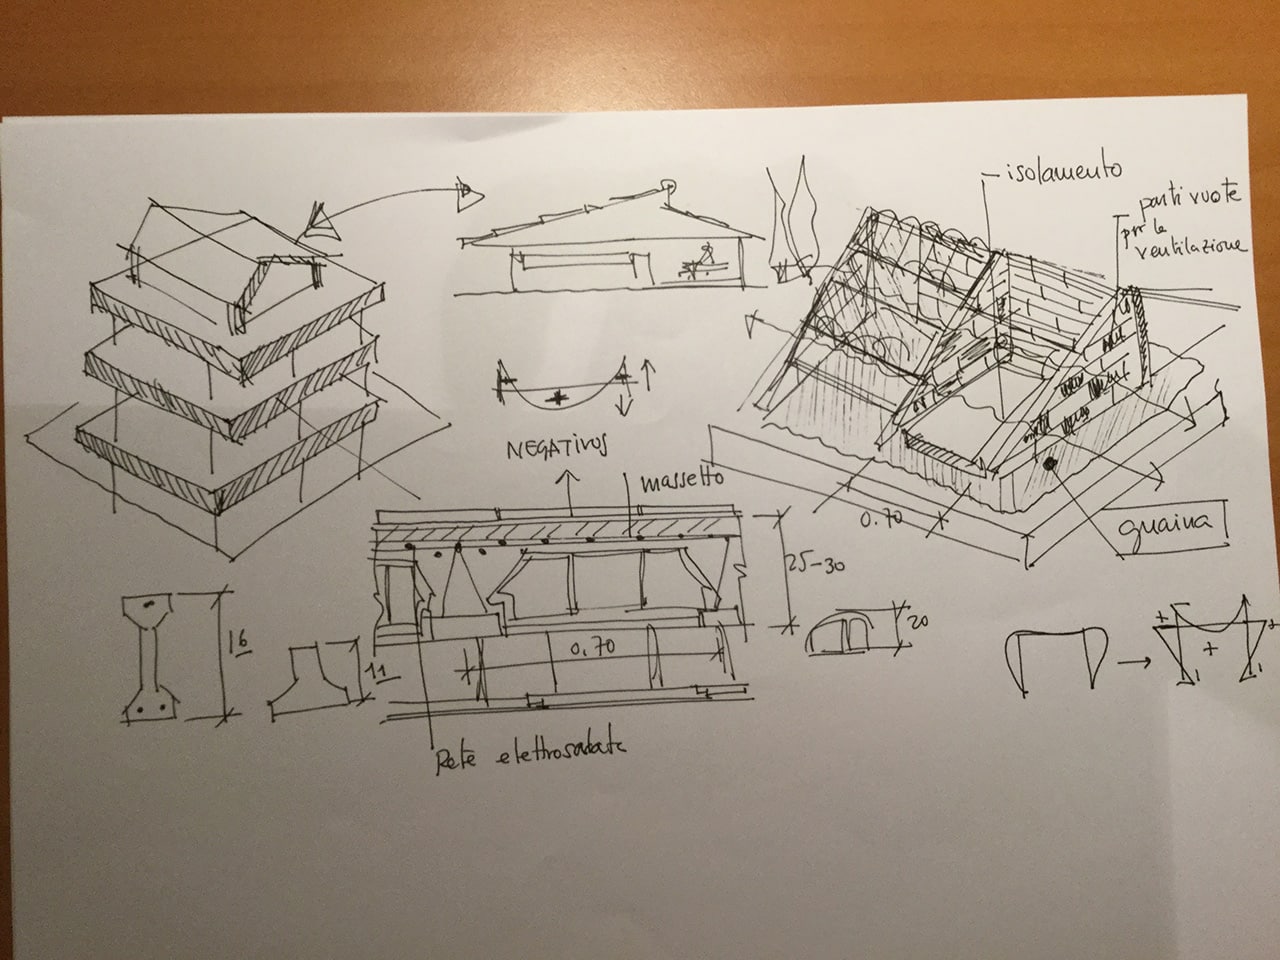 isolamento
parti vuote
per la
ventilazione
NEGATIVOS
massetto
0.70
guaina
25-30
16
11
0,70
20
+
+
+
Rete elettrosaldata